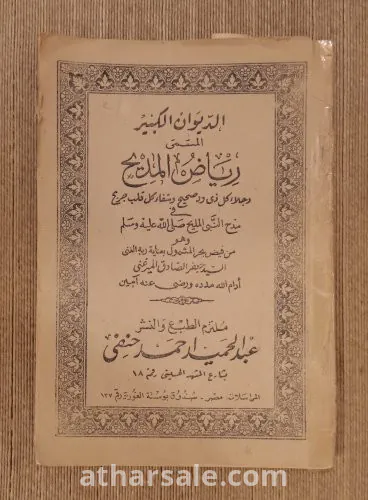 الديوان الكبير
المسمى
رياض المديح
وجلاء كل ذى ود صحيح وشفاء كل قلب جريح
فى
مدح النبى المليح صلى الله عليه وسلم
وهو
من فيض بحر المشمول بعناية ربه الغنى
السيد جعفر الصادق الميرغنى
أدام الله مدده ورضى عنه آمين
ملتزم الطبع والنشر
عبد الحميد أحمد حنفى
بشارع المشهد الحسينى رقم ١٨
المراسلات: مصر - صندوق بوستة الغورية رقم ١٣٧
atharsale.com